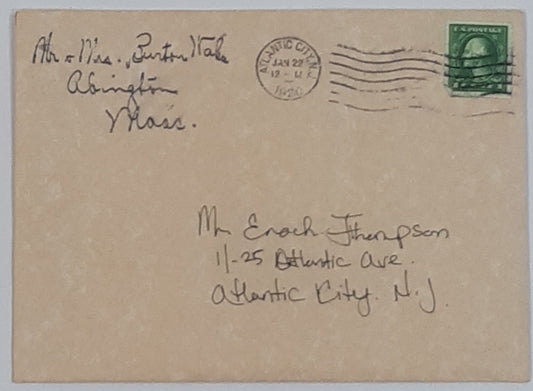 Mr & Mrs. Burton Wales
Abington
Mass.
ATLANTIC CITY, N.J.
JAN 22
12 - M
1920
U.S. POSTAGE
Mr Enoch Thompson
11-25 Atlantic Ave.
Atlantic City. N.J.